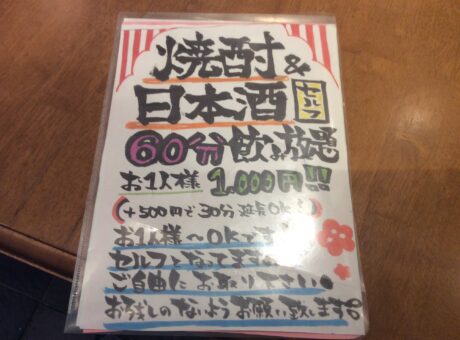 焼酎&
日本酒 セルフ
60分飲み放題
お1人様 1,000円!!
(+500円で30分延長OK!)
お1人様〜OKです
セルフとなってます
ご自由にお取り下さい。
お残しのないようお願い致します。